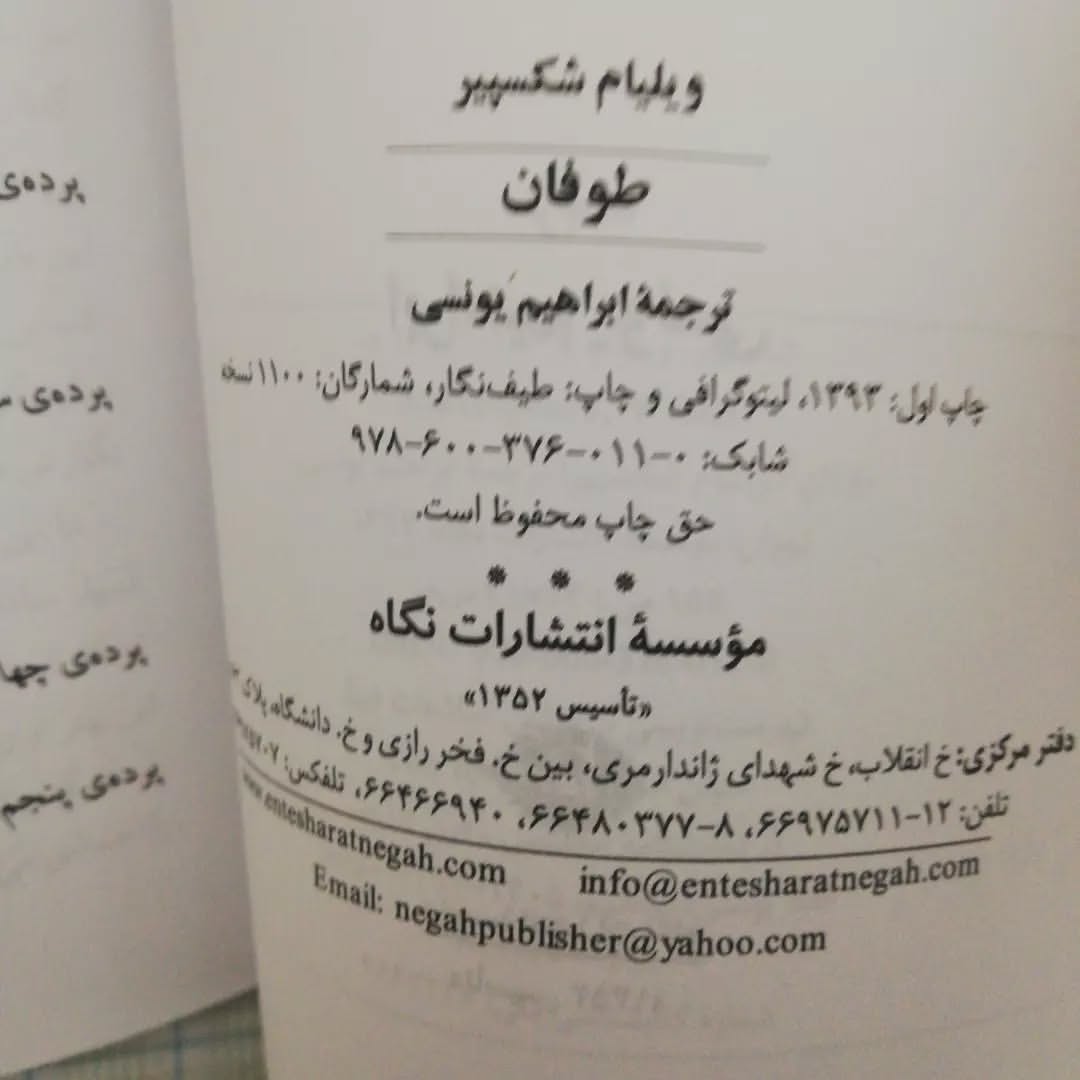 ویلیام شکسپیر
طوفان
ترجمهٔ ابراهیم یونسی
چاپ اول: ۱۳۹۳، لیتوگرافی و چاپ: طیف‌نگار، شمارگان: ۱۱۰۰ نسخه
شابک: ۰-۰۱۱-۳۷۶-۶۰۰-۹۷۸
حق چاپ محفوظ است.
* * *
مؤسسهٔ انتشارات نگاه
«تأسیس ۱۳۵۲»
دفتر مرکزی: خ انقلاب، خ شهدای ژاندارمری، بین خ. فخر رازی و خ. دانشگاه، پلاک
تلفن: ۱۲-۶۶۹۷۵۷۱۱، ۸-۶۶۴۸۰۳۷۷، ۶۶۴۶۶۹۴۰، تلفکس:
www.entesharatnegah.com info@entesharatnegah.com
Email: negahpublisher@yahoo.com
پرده‌ی
پرده‌ی
پرده‌ی چها
پرده‌ی پنجم